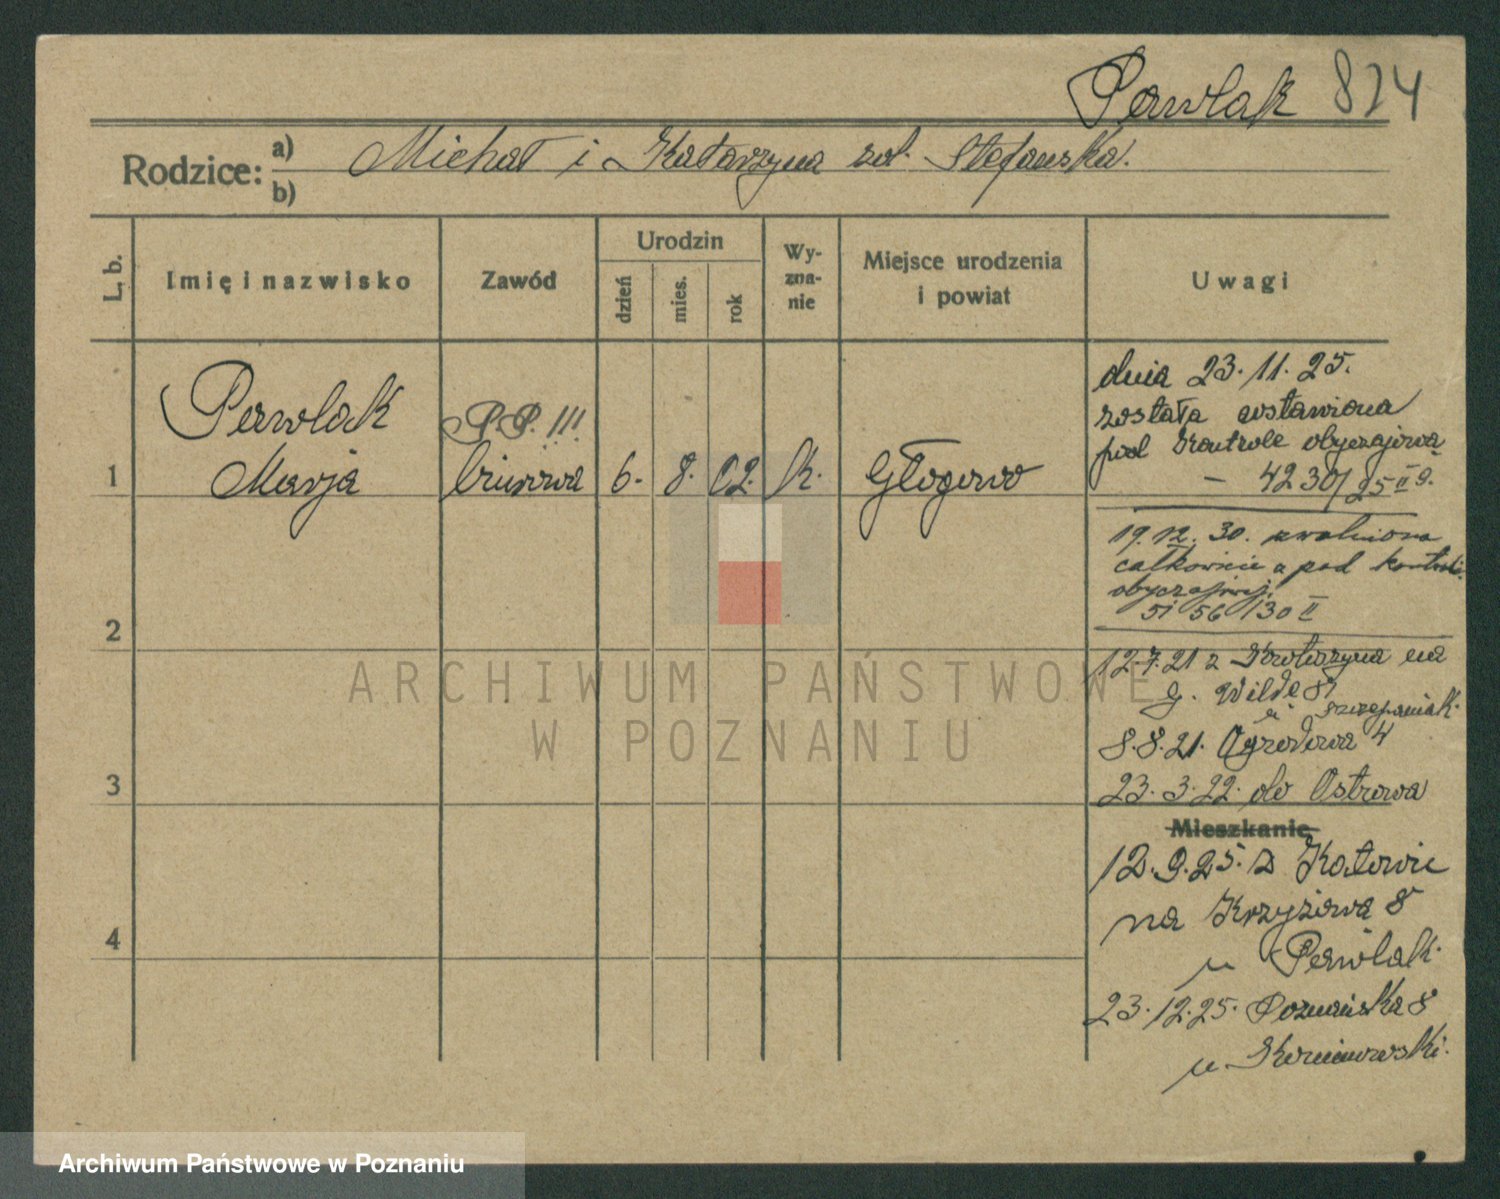 Perwlak 824
Rodzice: a) Michał i Katarzyna zd. Stefańska.
b)
L. b.
Imię i nazwisko
Zawód
Urodzin
dzień
mies.
rok
Wy-
zna-
nie
Miejsce urodzenia
i powiat
Uwagi
1
Perwlak
Marja
P.P. III
biurowa
6. 8. 02. k. Głogowo
dnia 23. 11. 25.
została wstawiona
pod kontrole obyczajową
– 4230/25 II g.
19. 12. 30. zwolniona
całkowicie z pod kontroli
obyczajowej.
5156/30 II
12.7.21 z Krotoszyna na
g. Wilde 87
u. Szczepaniak.
8.8.21. Ogrodowa 4
23. 3. 22. do Ostrowa
Mieszkanie
12. 9. 25. z Katowic
na Krzyżowa 8
u Perwlak.
23. 12. 25. Poznańska 8
u.
2
3
4
ARCHIWUM PAŃSTWOWE
W POZNANIU
Archiwum Państwowe w Poznaniu